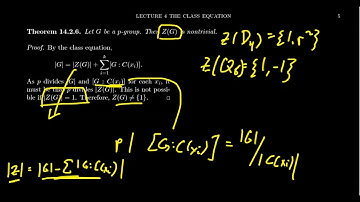 LECTURE 4 THE CLASS EQUATION 5
Theorem 14.2.6. Let G be a p-group. Then Z(G) is nontrivial.
Proof. By the class equation,
|G| = |Z(G)| + ∑_{i=1}^{k} [G : C(x_i)]
As p divides |G| and [G : C(x_i)] for each x_i, it
must be that p divides |Z(G)|. This is not possi-
ble if |Z(G)| = 1. Therefore, Z(G) ≠ {1}.
Z(D₄) = {1, r²}
Z(Q₈) = {1, -1}
p | [G : C(x_i)] = |G| / |C(x_i)|
|Z| = |G| - ∑ |G : C(x_i)|